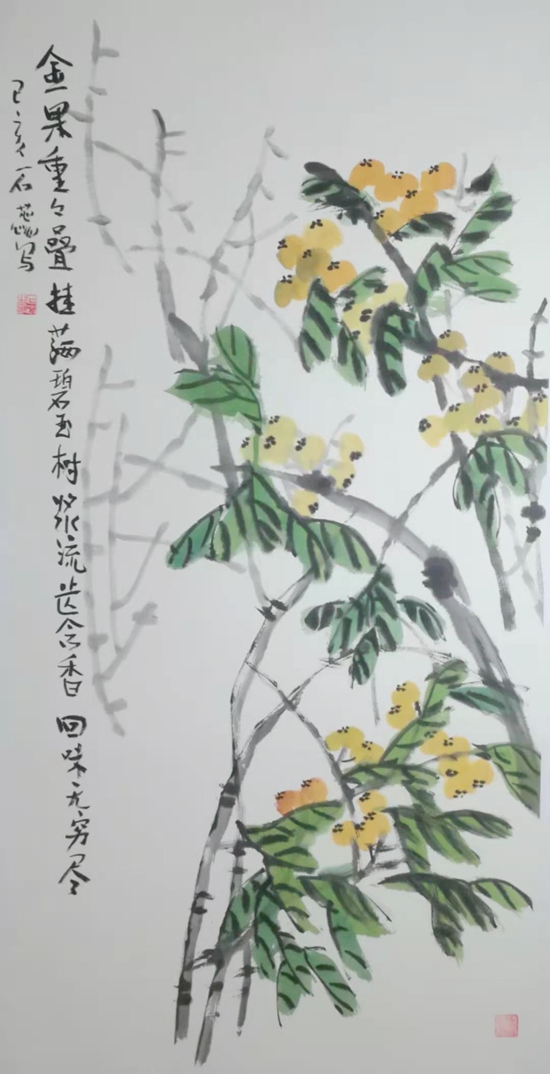 金果重々叠挂满碧玉树浆流齿含香回味无穷尽
己亥一石 写